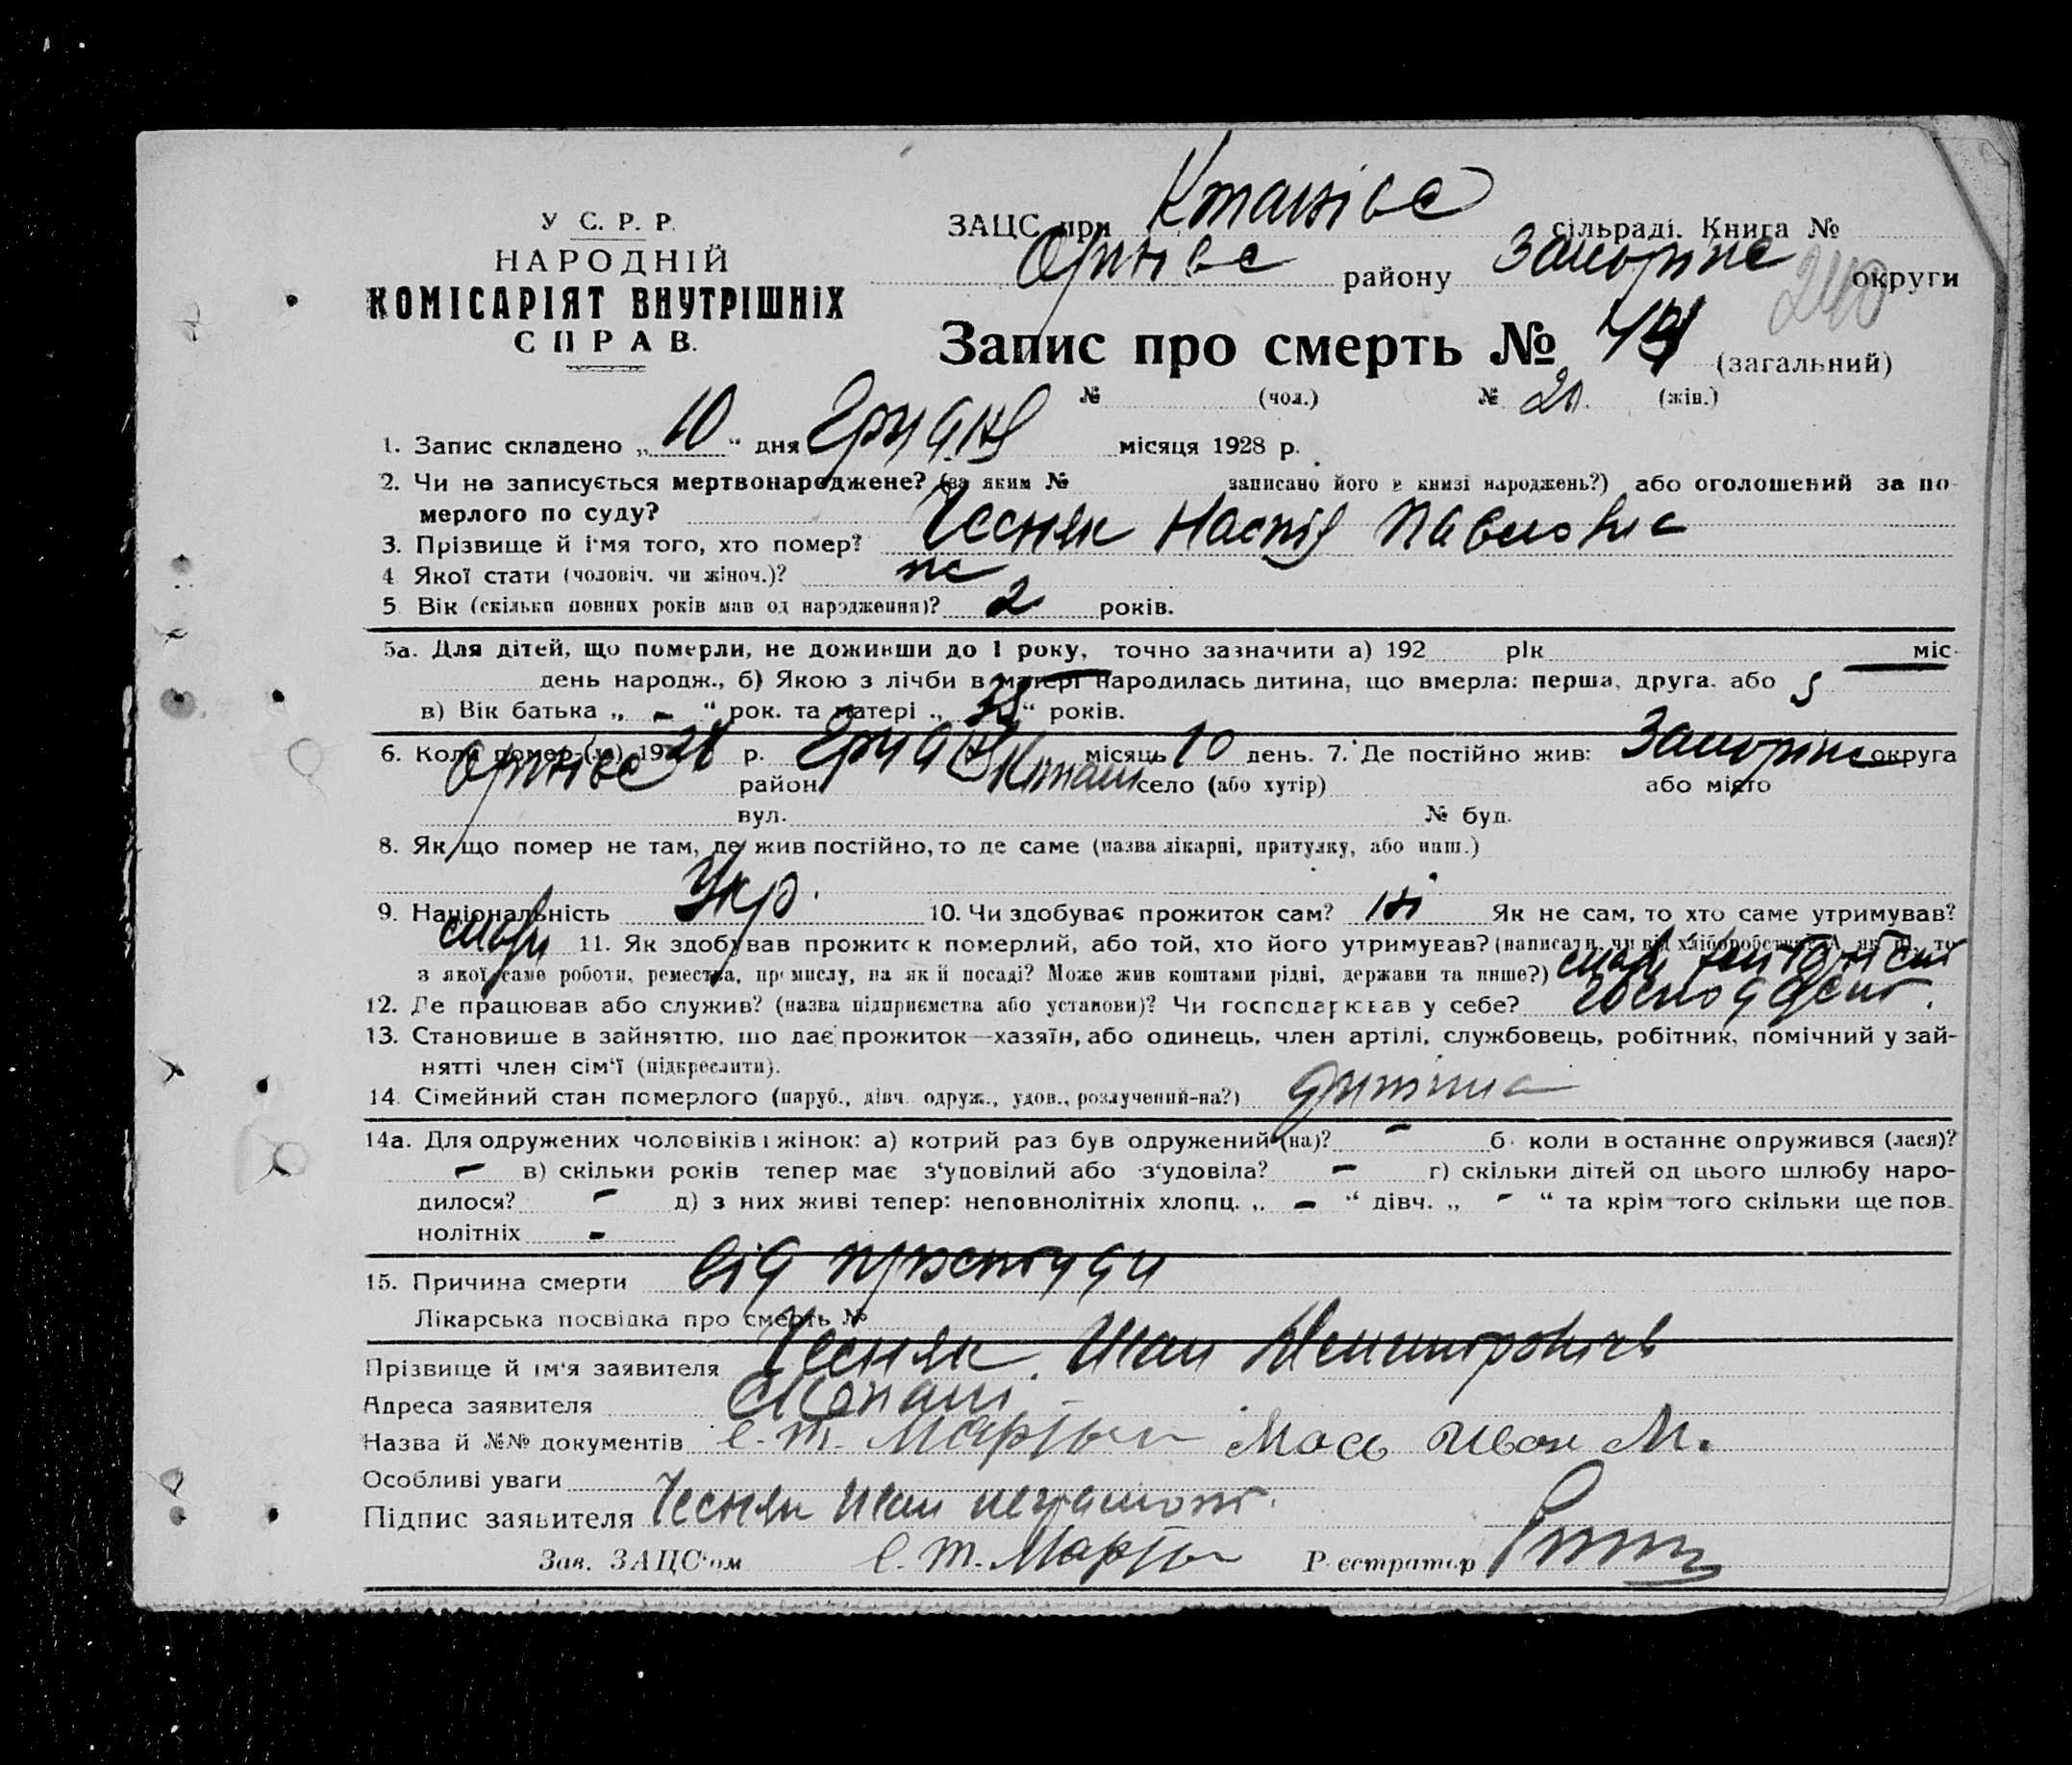 У С. Р. Р.
НАРОДНІЙ
КОМІСАРІЯТ ВНУТРІШНІХ
СПРАВ.
ЗАЦС при сільраді. Книга №
району округи
240
Запис про смерть № (загальний)
№ (чол.) № 20. (жін.)
1. Запис складено „ 10 “ дня Грудня місяця 1928 р.
2. Чи не записується мертвонароджене? (за яким № записано його в книзі народжень?) або оголошений за по-
мерлого по суду?
3. Прізвище й ім'я того, хто помер? Чесняк Настя Павловна
4 Якої стати (чоловіч. чи жіноч.)? же
5. Вік (скільки повних років мав од народження)? 2 років.
5а. Для дітей, що померли, не доживши до 1 року, точно зазначити а) 192 рік міс.
день народж., б) Якою з лічби в матері народилась дитина, що вмерла: перша, друга. або 5
в) Вік батька „ - “ рок. та матері „ 38 “ років.
6. Коли помер (ла) 1928 р. Грудня місяць 10 день. 7. Де постійно жив: Запоріж округа
район село (або хутір) або місто
вул. № буд.
8. Як що помер не там, де жив постійно, то де саме (назва лікарні, притулку, або инш.)
9. Національність Укр. 10. Чи здобуває прожиток сам? ні Як не сам, то хто саме утримував?
11. Як здобував прожиток померлий, або той, хто його утримував? (написати, чи від хліборобства? А як ні, то
з якої саме роботи, ремества, промислу, на якій посаді? Може жив коштами рідні, держави та инше?)
12. Де працював або служив? (назва підприємства або установи)? Чи господарював у себе?
13. Становище в зайняттю, що дає прожиток—хазяїн, або одинець, член артілі, службовець, робітник, помічний у зай-
нятті член сім'ї (підкреслити).
14. Сімейний стан померлого (паруб., дівч. одруж., удов., розлучений-на?) дитина
14а. Для одружених чоловіків і жінок: а) котрий раз був одружений (на)? - б. коли в останнє одружився (лася)?
- в) скільки років тепер має з'удовілий або з'удовіла? - г) скільки дітей од цього шлюбу наро-
дилося? - д) з них живі тепер: неповнолітніх хлопц. „ - “ дівч. „ - “ та крім того скільки ще пов-
нолітніх -
15. Причина смерти від простуди
Лікарська посвідка про смерть №
Прізвище й ім'я заявителя Чесняк Иван
Адреса заявителя
Назва й №№ документів Иван М.
Особливі уваги
Підпис заявителя Чесняк Иван неграмот.
Зав. ЗАЦС'ом Реєстратор